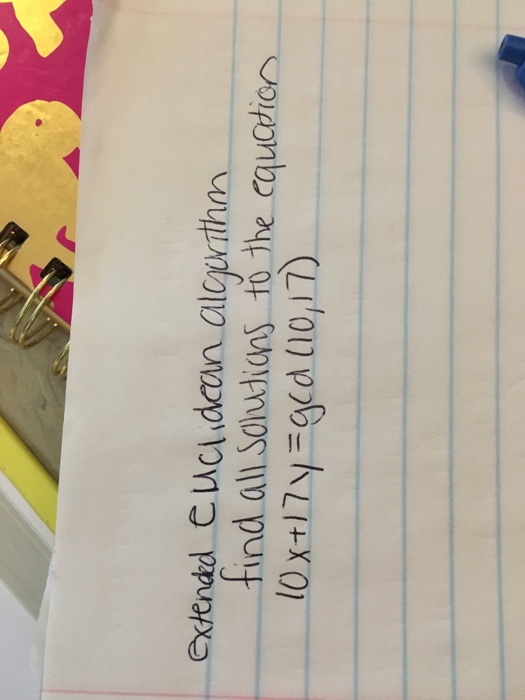 extended Euclidean algorithm
find all solutions to the equation
10x+17y=gcd(10,17)